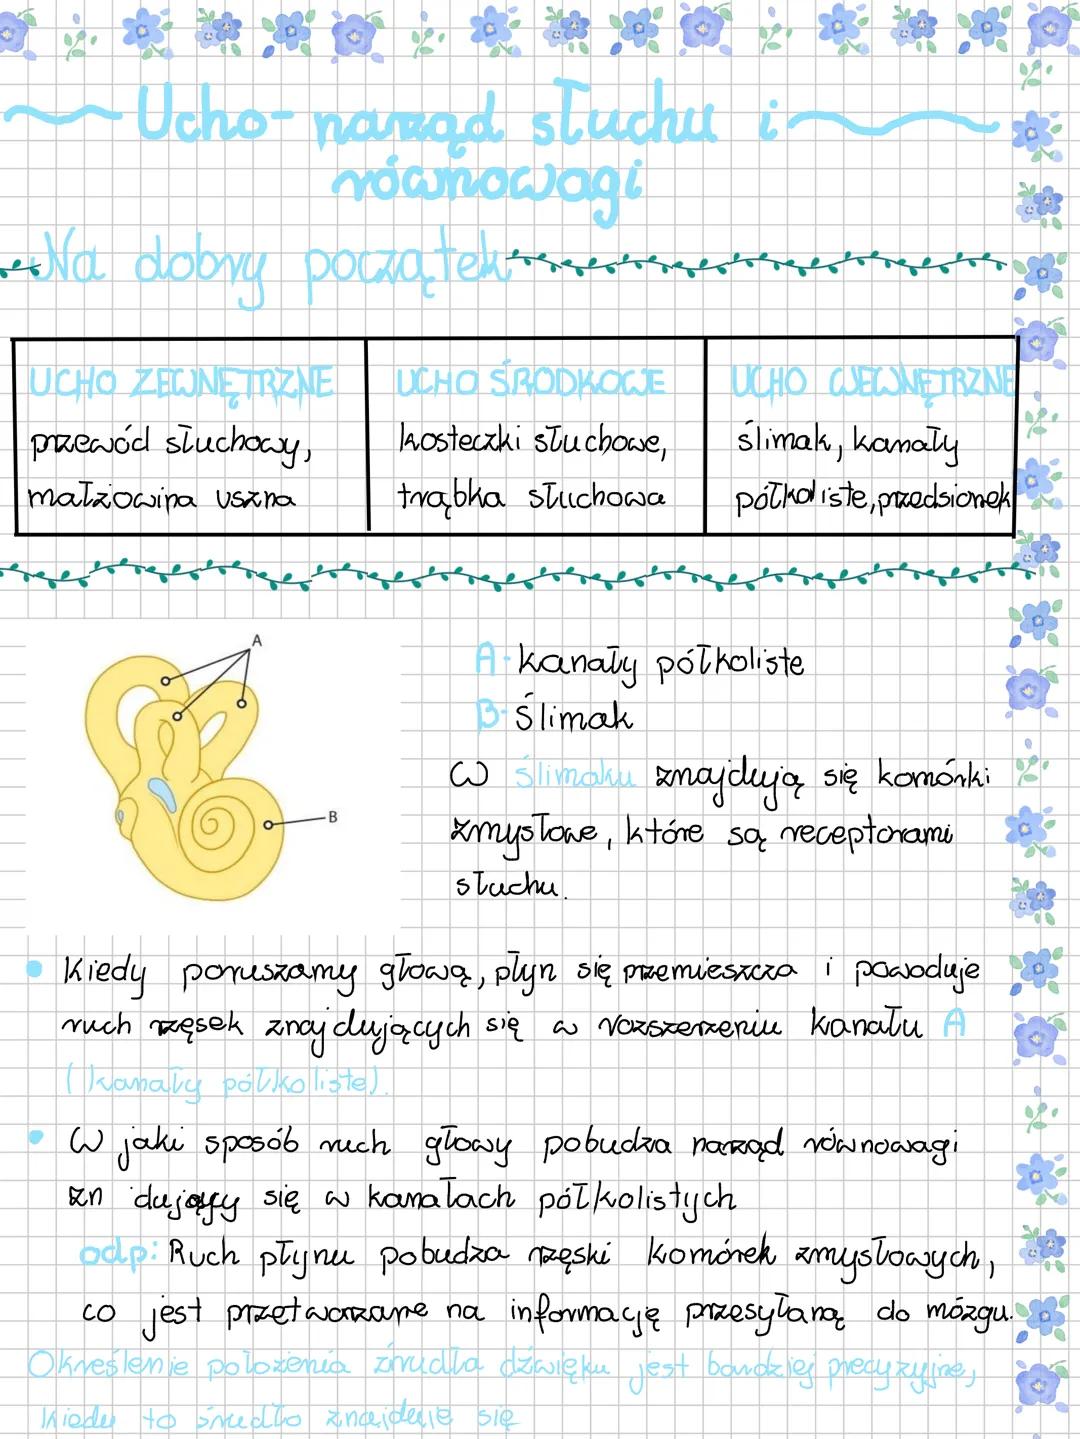 Ucho - narząd słuchu i
równowagi
Na dobry początek
UCHO ZEWNĘTRZNE
przewód słuchowy,
małżowina uszna
UCHO ŚRODKOWE
kosteczki słuchowe,
trąbka słuchowa
UCHO WEWNĘTRZNE
ślimak, kanały
półkoliste, przedsionek
A
B
A - kanały półkoliste
B - Ślimak
W ślimaku znajdują się komórki
zmysłowe, które są receptorami
słuchu.
• Kiedy poruszamy głową, płyn się przemieszcza i powoduje
ruch rzęsek znajdujących się w rozszerzeniu kanału A
(kanały półkoliste).
• W jaki sposób ruch głowy pobudza narząd równowagi
się w kanałach półkolistych
odp: Ruch płynu pobudza rzęski komórek zmysłowych,
co jest przetwarzane na informację przesyłaną do mózgu.
Określenie położenia źrudła dźwięku jest bardziej precyzyjne,
kiedy to źrudło znajduje się